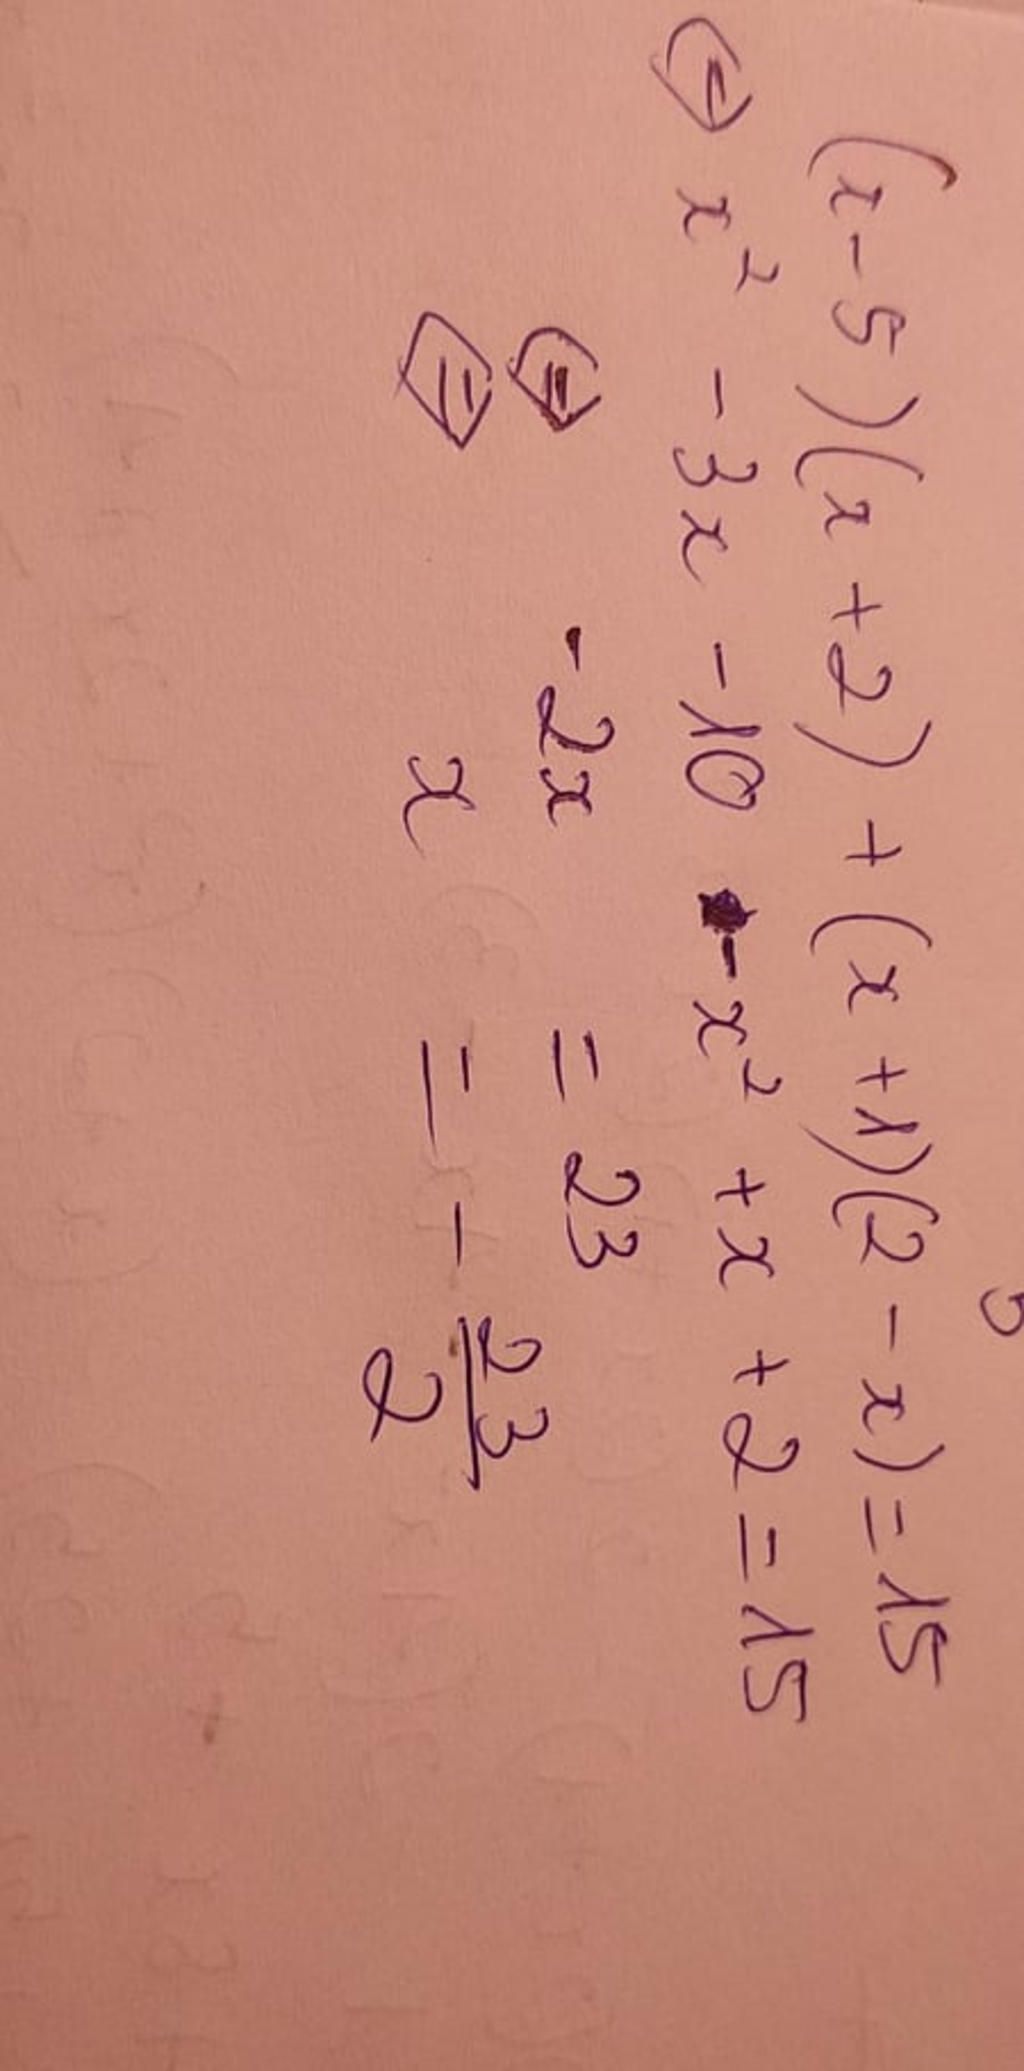 (x-5)(x+2)+(x+1)(2-x)=15
⇔ x² -3x -10 -x² +x +2=15
⇔ -2x = 23
⇔ x = -23/2